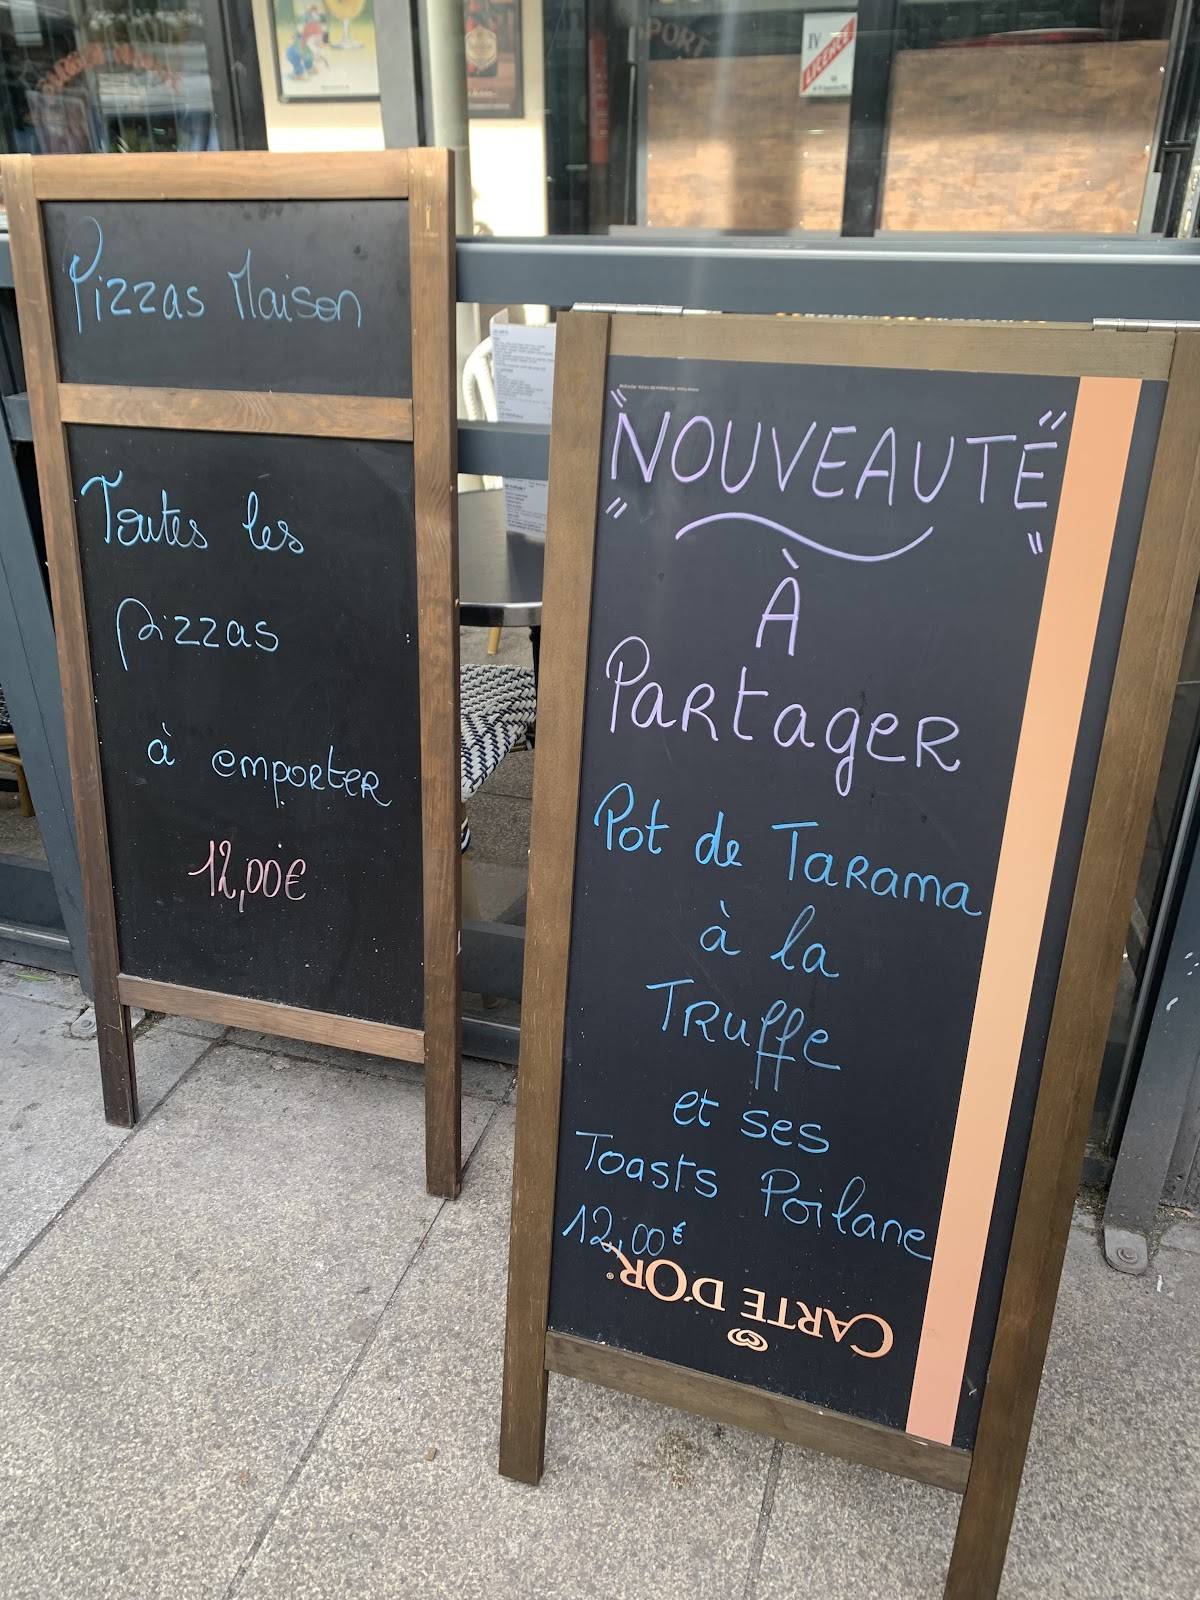 Pizzas Maison
Toutes les
pizzas
à emporter
12,00€
PORT
IV
LICENCE
"NOUVEAUTÉ"
À
Partager
Pot de Tarama
à la
Truffe
et ses
Toasts Poilane
12,00€
CARTE D'OR